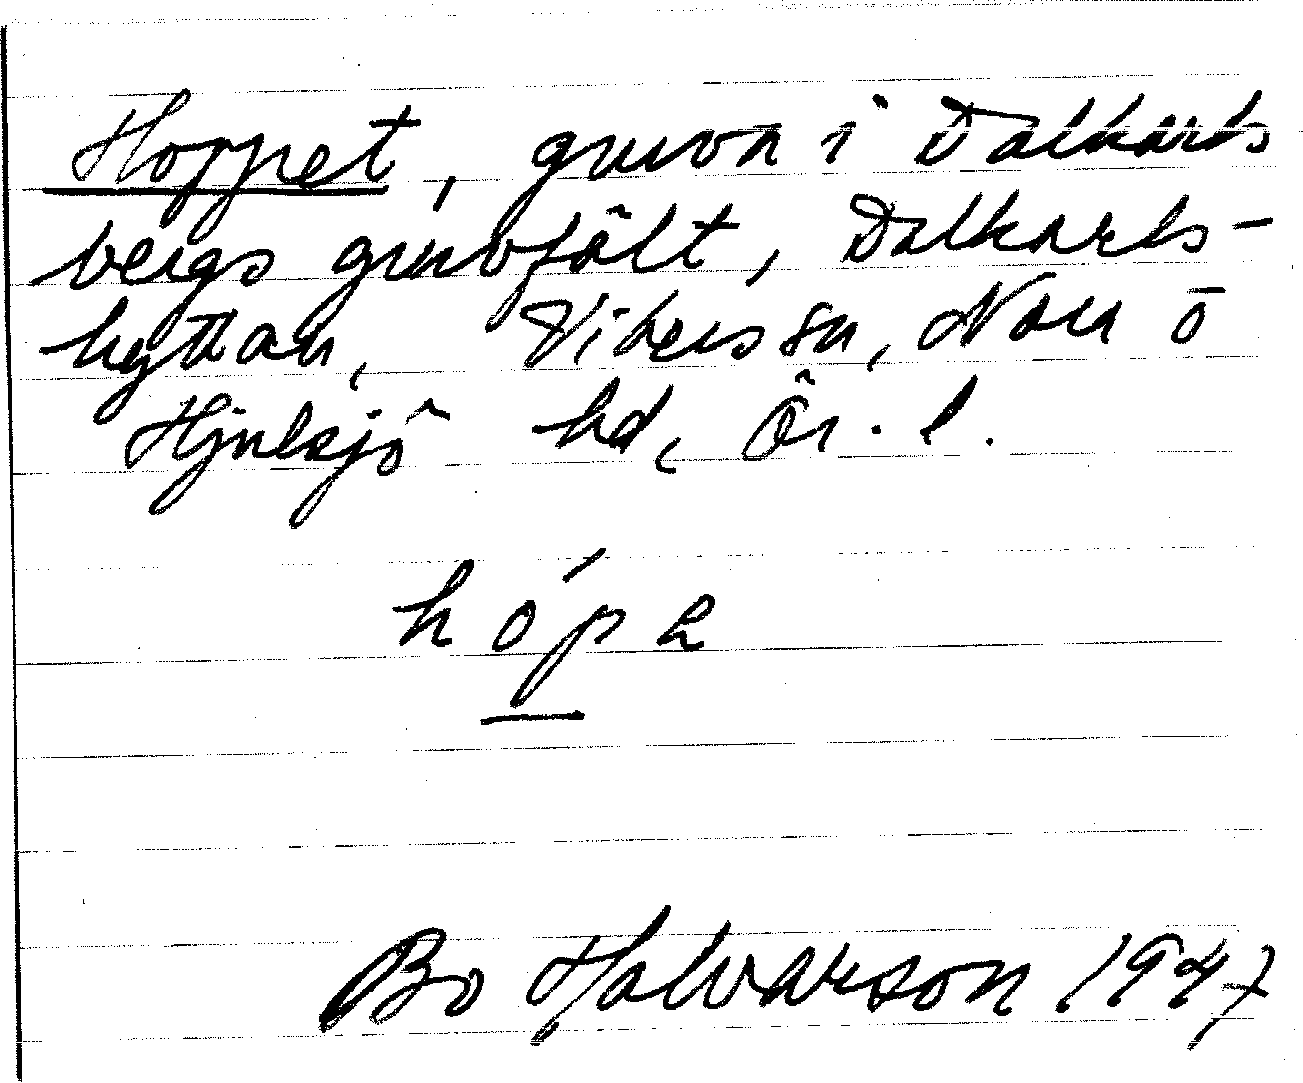 Hoppet, gruva i Dalkarls
bergs gruvfält, Dalkarls-
hyttan, Vikers sn, Nora o
Hjulsjö hd, Ör. l.
hópe
Bo Halvarson 1947